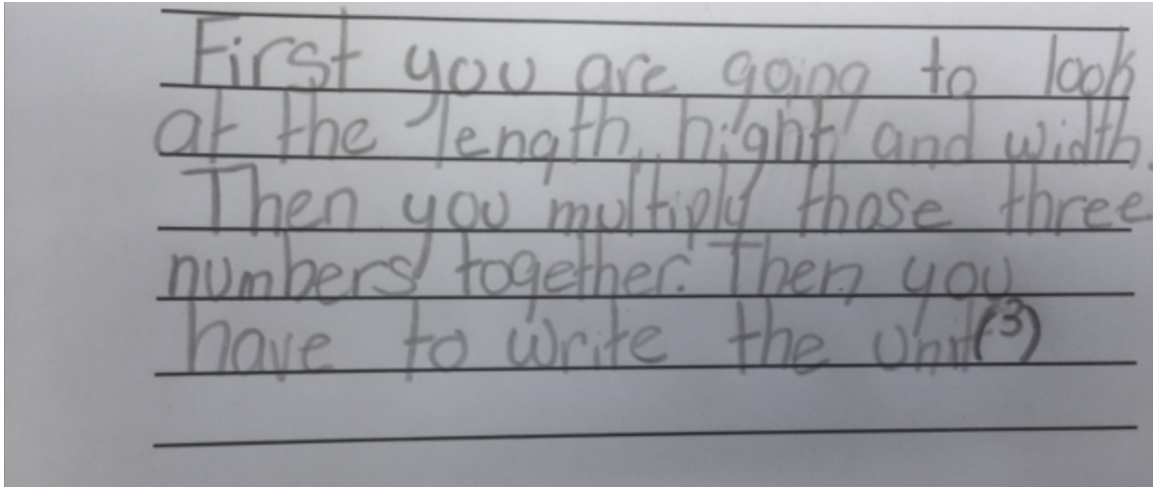 First you are going to look
at the length, hight, and width.
Then you multiply those three
numbers together. Then you
have to write the unit(³)